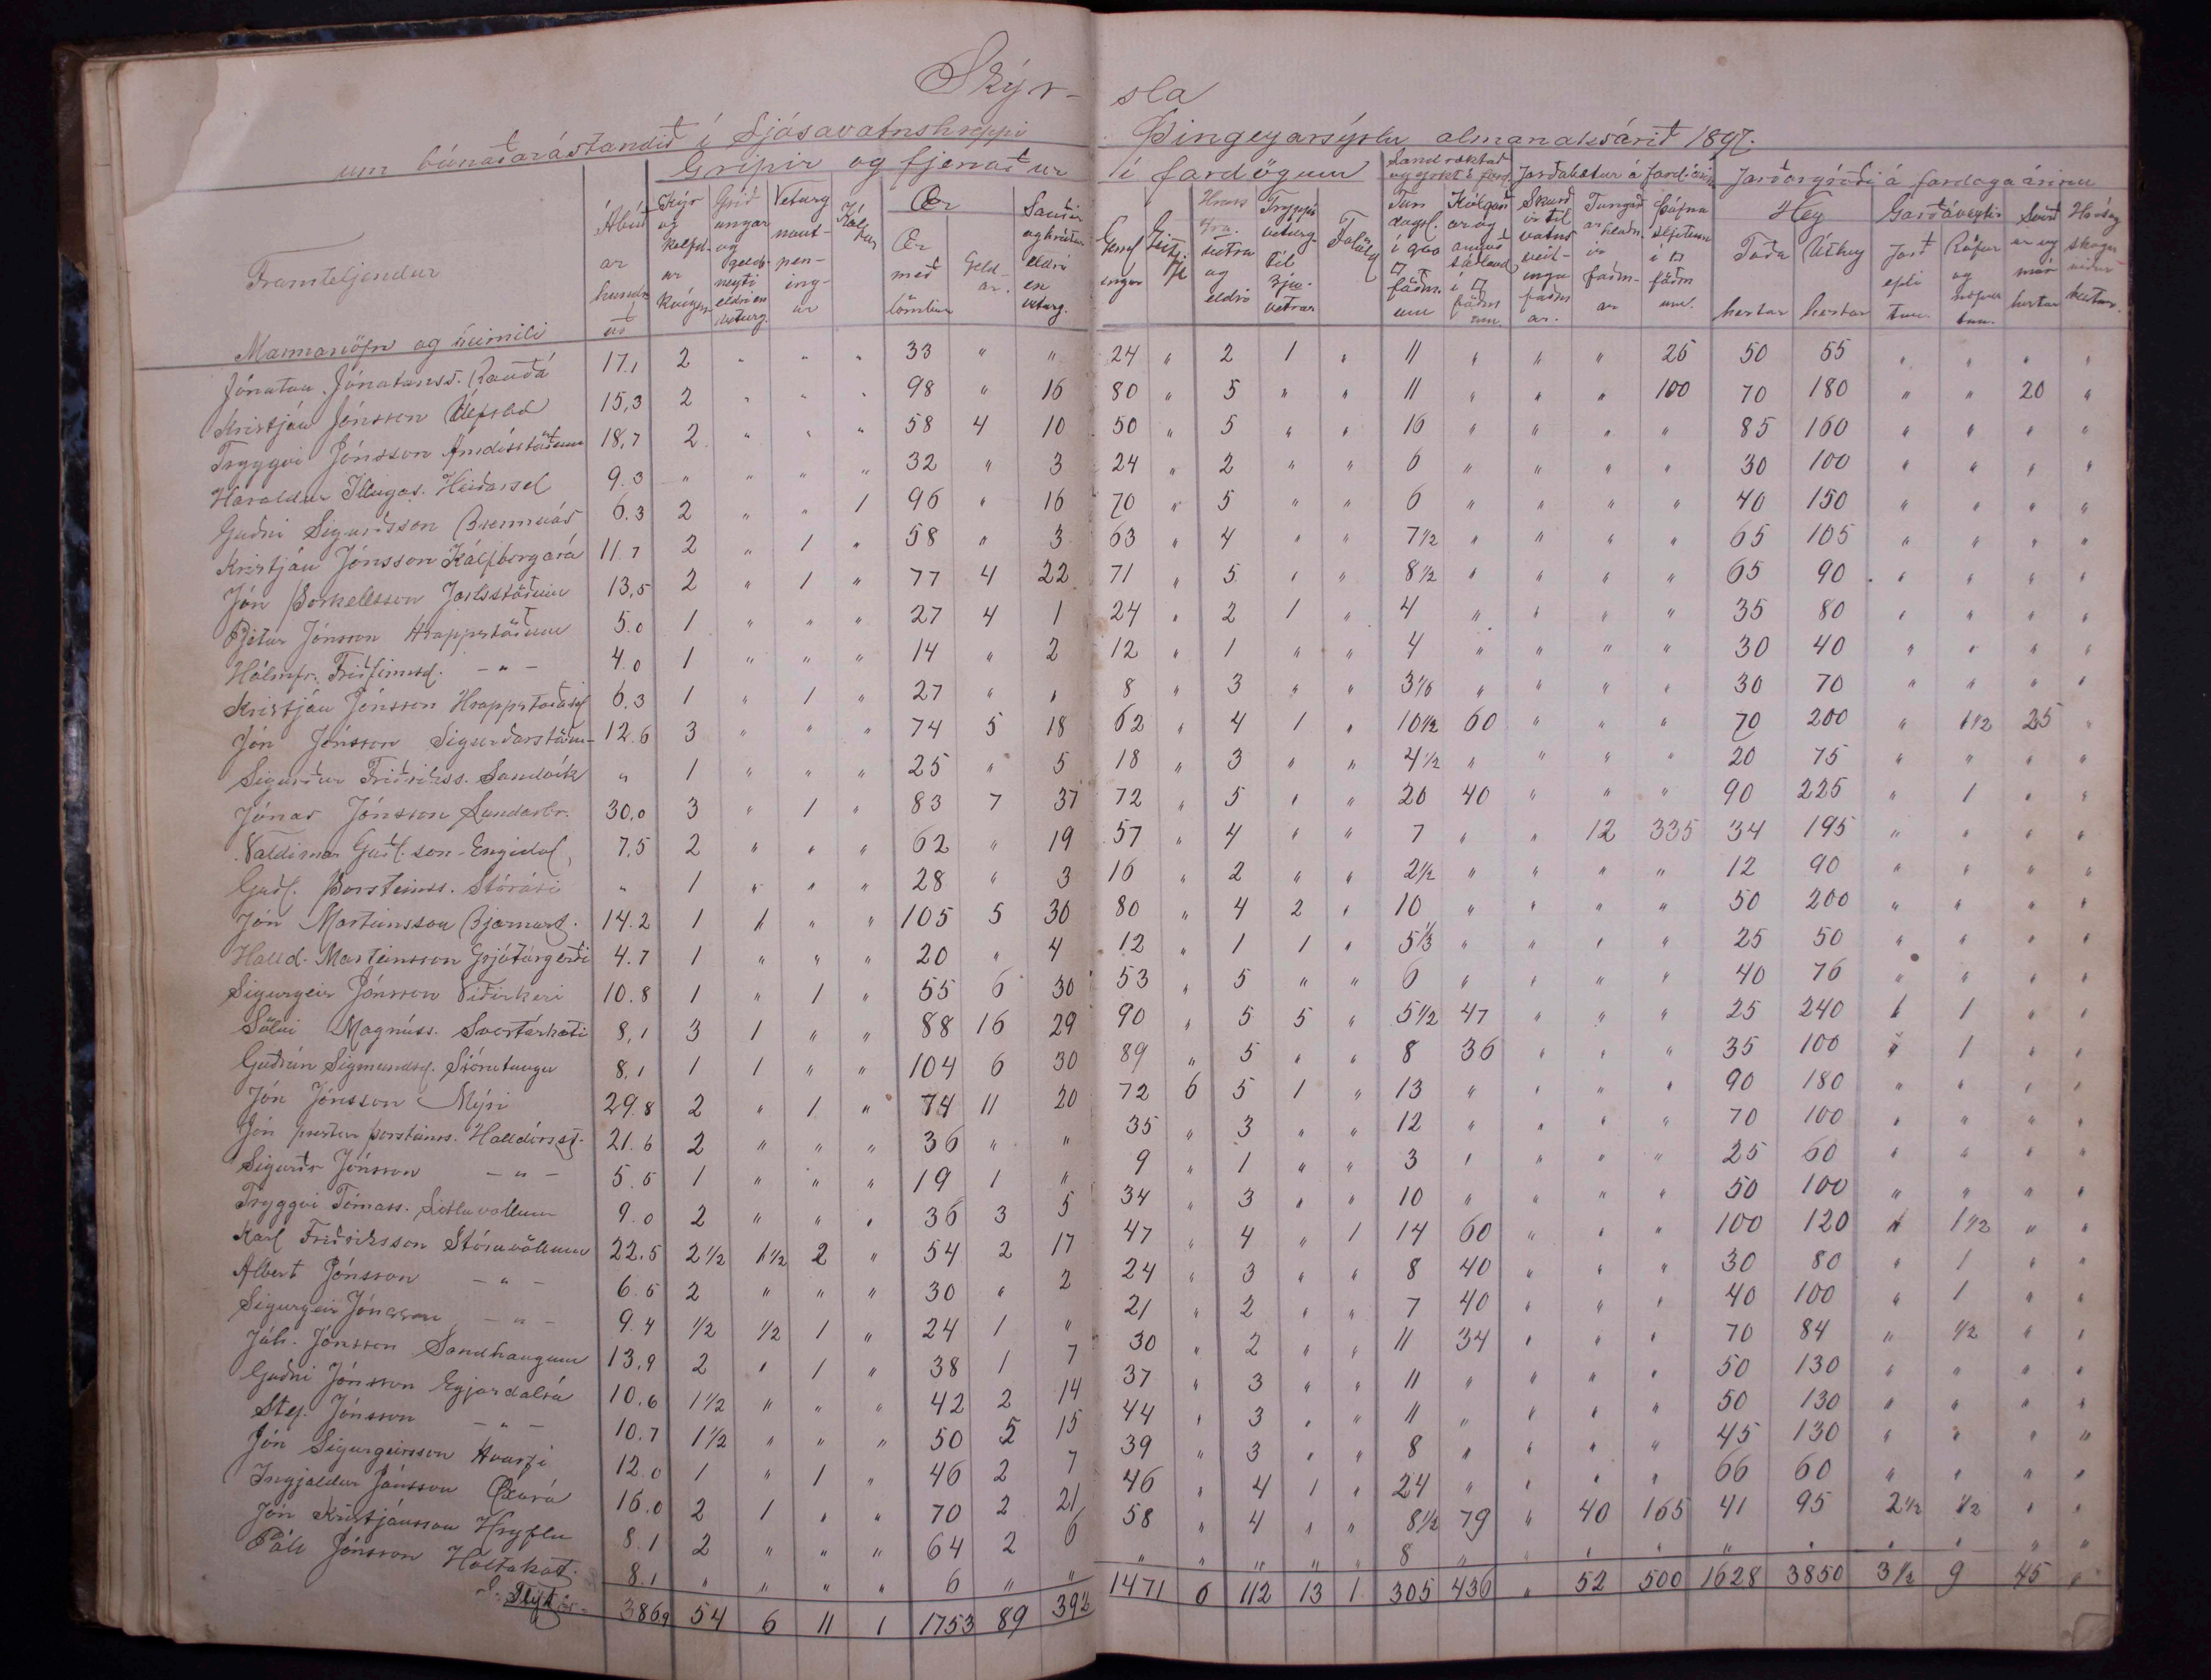 Skýr- sla
um búnaðarástandið í Ljósavatnshreppi Þingeyarsýslu almanaksárið 1897.
Gripir og fjenaður í fardögum Jarðabætur á fard.árinu Jarðargróði á fardaga árinu
Framteljendur
Mannanöfn og heimili
Ábúð ar hundr uð
Kýr og kelfd ar kvígur
Grið ungar og geld neyti eldri en veturg.
Veturg naut- pen- ing- ur
Kálf ar
Ær
Ær með lömbum
Geld ar.
Sauðir og hrútar eldri en veturg.
Geml ingar
Geitf.
Hross 4ra. vetra og eldri
Tryppi veturg til 3ja. vetrar
Folöld
Tún dagsl. í 900 □ föðm um
Kálgarð ar og annað sáðland í □ föðm um.
Skurð ir til vatns veit- inga faðm ar.
Túngarð ar hlaðn ir faðm- ar
Þúfna sljettun í □ föðm um.
Hey
Taða hestar
Úthey hestar
Garðávextir
Jarð epli tun.
Rófur og næpur tun.
Svörð ur og mór hestar
Hrís og skógar viður hestar.
Jónatan Jónatanss. Rauðá 17,1 2 " " " 33 " " 24 " 2 1 " 11 " " " 25 50 55 " " " "
Kristján Jónsson Úlfsbæ 15,3 2 " " " 98 " 16 80 " 5 " " 11 " " " 100 70 180 " " 20 "
Tryggvi Jónsson Arndísstöðum 18,7 2 " " " 58 4 10 50 " 5 " " 16 " " " " 85 160 " " " "
Haraldur Illugas. Heiðarsel 9.3 " " " " 32 " 3 24 " 2 " " 6 " " " " 30 100 " " " "
Guðni Sigurðsson Brennuás 6.3 2 " " 1 96 " 16 70 " 5 " " 6 " " " " 40 150 " " " "
Kristján Jónsson Kálfborgará 11.7 2 " 1 " 58 " 3 63 " 4 " " 7 1/2 " " " " 65 105 " " " "
Jón Þorkellsson Jarlsstöðum 13,5 2 " 1 " 77 4 22 71 " 5 " " 8 1/2 " " " " 65 90 " " " "
Pjetur Jónsson Hrappstöðum 5.0 1 " " " 27 4 1 24 " 2 1 " 4 " " " " 35 80 " " " "
Hólmfr. Friðfinnsd. - " - 4.0 1 " " " 14 " 2 12 " 1 " " 4 " " " " 30 40 " " " "
Kristján Jónsson Hrappstaðasel 6.3 1 " 1 " 27 " " 8 " 3 " " 3 1/6 " " " " 30 70 " " " "
Jón Jónsson Sigurðarstöðum 12.6 3 " " " 74 5 18 62 " 4 1 " 10 1/2 60 " " " 70 200 " 1 1/2 25 "
Sigurður Friðrikss. Sandvík " 1 " " " 25 " 5 18 " 3 " " 4 1/2 " " " " 20 75 " " " "
Jónas Jónsson Lundarbr. 30,0 3 " 1 " 83 7 37 72 " 5 " " 20 40 " " " 90 225 " 1 " "
Valdimar Guðl.son Engidal 7,5 2 " " " 62 " 19 57 " 4 " " 7 " " 12 335 34 195 " " " "
Guðl. Þorsteinss. Stórási " 1 " " " 28 " 3 16 " 2 " " 2 1/2 " " " " 12 90 " " " "
Jón Marteinsson Bjarnarst. 14.2 1 1 " " 105 5 36 80 " 4 2 " 10 " " " " 50 200 " " " "
Halld. Marteinsson Grjótárgerði 4.7 1 " " " 20 " 4 12 " 1 1 " 5 1/3 " " " " 25 50 " " " "
Sigurgeir Jónsson Víðirkeri 10.8 1 " 1 " 55 6 30 53 " 5 " " 6 " " " " 40 76 " " " "
Sölvi Magnúss. Svartárkoti 8,1 3 1 " " 88 16 29 90 " 5 5 " 5 1/2 47 " " " 25 240 1 1 " "
Guðrún Sigmundsd. Stórutungu 8,1 1 1 " " 104 6 30 89 " 5 " " 8 36 " " " 35 100 " 1 " "
Jón Jónsson Mýri 29.8 2 " 1 " 74 11 20 72 6 5 1 " 13 " " " " 90 180 " " " "
Jón prestur Þorsteinss. Halldórsst. 21.6 2 " " " 36 " " 35 " 3 " " 12 " " " " 70 100 " " " "
Sigurðr Jónsson - " - 5.5 1 " " " 19 1 " 9 " 1 " " 3 " " " " 25 60 " " " "
Tryggvi Tómass. Litluvöllum 9.0 2 " " " 36 3 5 34 " 3 " " 10 " " " " 50 100 " " " "
Karl Friðriksson Stóruvöllum 22.5 2 1/2 1 1/2 2 " 54 2 17 47 " 4 " 1 14 60 " " " 100 120 1 1 1/2 " "
Albert Jónsson - " - 6.5 2 " " " 30 " 2 24 " 3 " " 8 40 " " " 30 80 " 1 " "
Sigurgeir Jónsson - " - 9.4 1/2 1/2 1 " 24 1 " 21 " 2 " " 7 40 " " " 40 100 " 1 " "
Jóh. Jónsson Sandhaugum 13,9 2 " 1 " 38 1 7 30 " 2 " " 11 34 " " " 70 84 " 1/2 " "
Guðni Jónsson Eyjardalsá 10.6 1 1/2 " " " 42 2 14 37 " 3 " " 11 " " " " 50 130 " " " "
Stef. Jónsson - " - 10.7 1 1/2 " " " 50 5 15 44 " 3 " " 11 " " " " 50 130 " " " "
Jón Sigurgeirsson Hvarfi 12.0 1 " 1 " 46 2 7 39 " 3 " " 8 " " " " 45 130 " " " "
Ingjaldur Jónsson Öxará 16.0 2 1 " " 70 2 21 46 " 4 1 " 24 " " " " 66 60 " " " "
Jón Kristjánsson Hryflu 8.1 2 " " " 64 2 6 58 " 4 " " 8 1/2 79 " 40 165 41 95 2 1/2 1/2 " "
Páll Jónsson Holtakot. 8.1 " " " " 6 " " " " " " " 8 " " " " " " " " " "
Flyt 3869 54 6 11 1 1753 89 392 1471 6 112 13 1 305 436 " 52 500 1628 3850 3 1/2 9 45 "